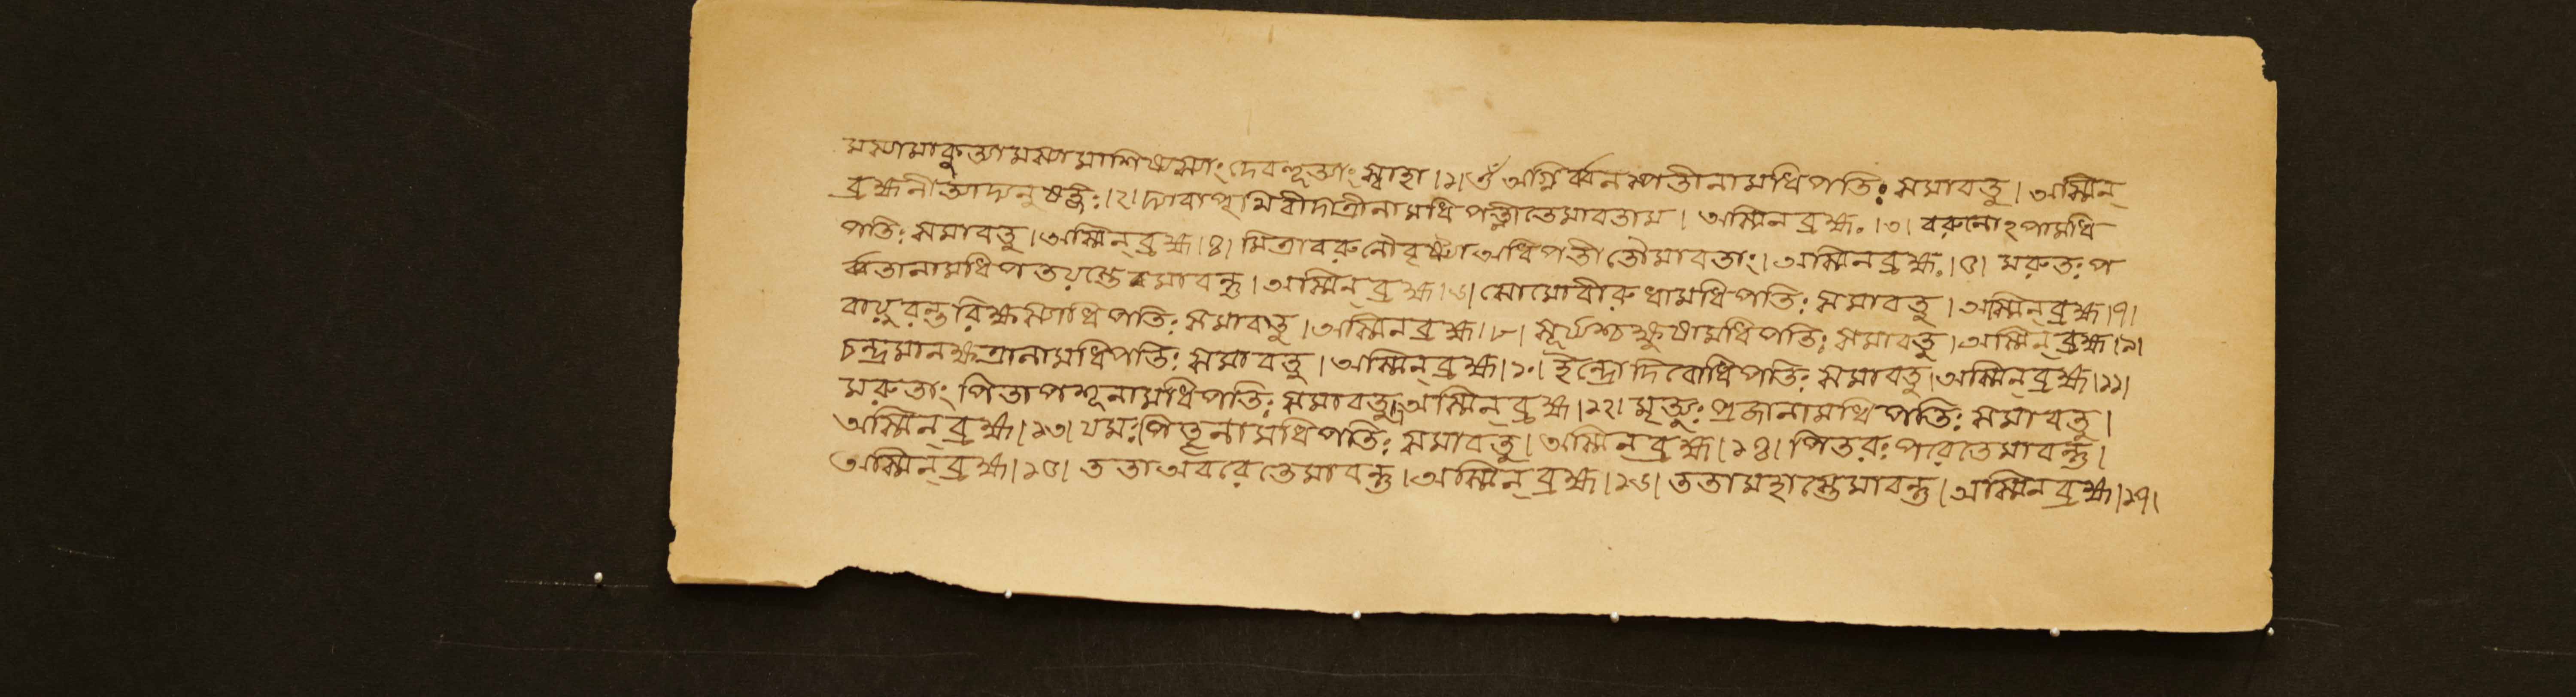 মস্যামাকুত্যামস্যামাশিষ্যস্যাং দেবহূত্যাং স্বাহা।১। ওঁ অগ্নির্ব্বনস্পতীনামধিপতিঃ সমাবতু। অস্মিন্
ব্রহ্মনীত্যাদ্যনুষঙ্গঃ।২। দ্যাবাপৃথিবীদাত্রীনামধিপত্নীতেমাবতাম। অস্মিন ব্রহ্ম০।৩। বরুনোঽপামধি
পতিঃ সমাবতু। অস্মিন্ ব্রহ্ম।৪। মিত্রাবরুনৌবৃষ্ট্যাঅধিপতীতৌমাবতাং। অস্মিনব্রহ্ম০।৫। মরুতঃ প
র্ব্বতানামধিপতয়স্তেমাবন্তু। অস্মিন্ ব্রহ্ম।৬। সোমোবীরুধামধিপতিঃ সমাবতু। অস্মিন্ ব্রহ্ম।৭।
বায়ুরন্তরিক্ষস্যাধিপতিঃ সমাবতু। অস্মিনব্রহ্ম।৮। সূর্য্যশ্চক্ষুষামধিপতিঃ সমাবতু। অস্মিন্ ব্রহ্ম।৯।
চন্দ্রমানক্ষত্রানামধিপতিঃ সমাবতু। অস্মিন্ ব্রহ্ম।১০। ইন্দ্রোদিবোধিপতিঃ সমাবতু। অস্মিন্ ব্রহ্ম।১১।
মরুতাং পিতাপশূনামধিপতিঃ সমাবতু। অস্মিন্ ব্রহ্ম।১২। মৃত্যুঃ প্রজানামধিপতিঃ সমাবতু।
অস্মিন্ ব্রহ্ম।১৩। যমঃ পিতৃনামধিপতিঃ সমাবতু। অস্মিন্ ব্রহ্ম।১৪। পিতরঃ পরেতেমাবন্তু।
অস্মিন্ ব্রহ্ম।১৫। ততাঅবরেতেমাবন্তু। অস্মিন্ ব্রহ্ম।১৬। ততামহাস্তেমাবন্তু। অস্মিন ব্রহ্ম।১৭।